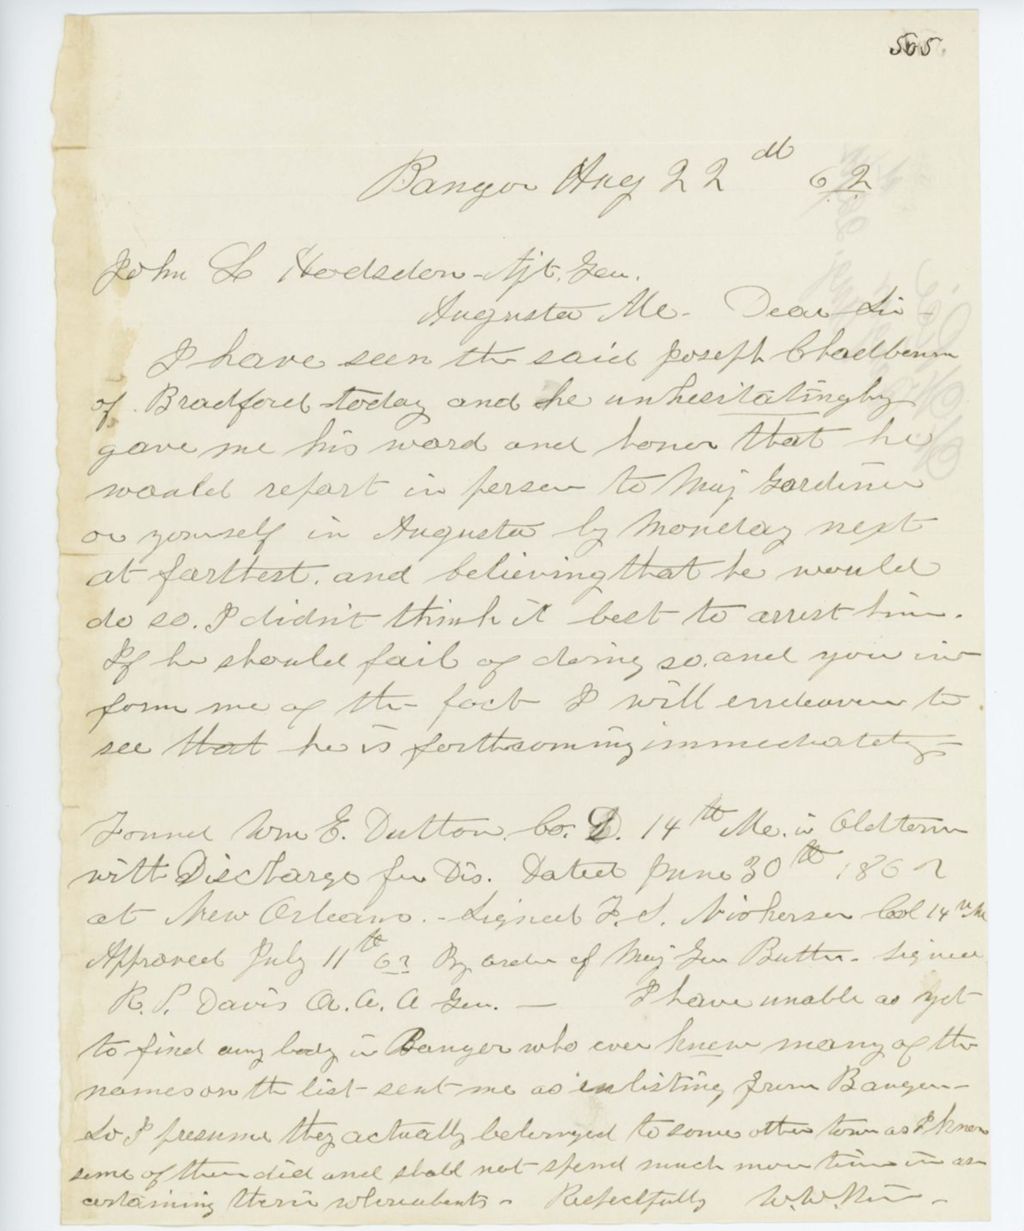 505.
Bangor Aug 22 d 62
John L Hodsdon - Ajt. Gen.
Augusta Me - Dear Sir -
I have seen the said Joseph Chadbourn
of Bradford today and he unhesitatingly
gave me his word and honor that he
would report in person to Maj Gardiner
or yourself in Augusta by Monday next
at farthest, and believing that he would
do so. I didn't think it best to arrest him.
If he should fail of doing so, and you in
form me of the fact I will endeavour to
see that he is forthcoming immediately -
Found Wm E. Dutton Co. D. 14th Me. in Oldtown
with Discharge for Dis. Dated June 30th 1862
at New Orleans. - Signed F. S. Nickerson Col 14th Me
Approved July 11th 62 By order of Maj Gen Butler - signed
R. S. Davis A. A. A Gen. - I have unable as yet
to find any body in Bangor who ever knew many of the
names on the list sent me as enlisting from Bangor -
So I presume they actually belonged to some other town as I know
some of them did and shall not spend much more time in as
certaining their whereabouts - Respectfully W. W.